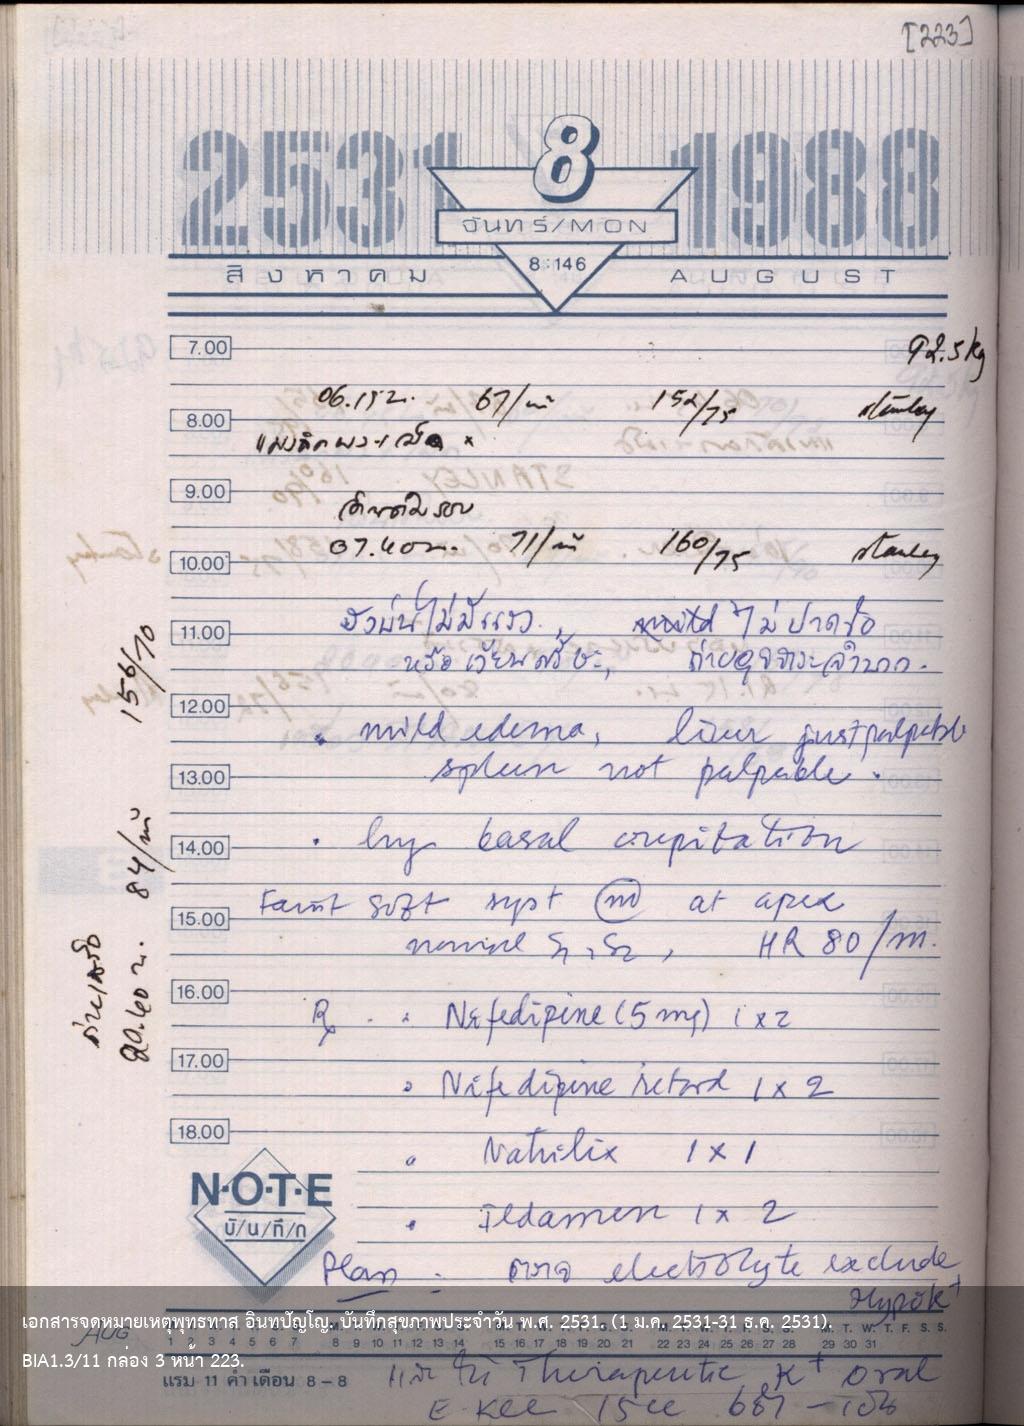 [223]
2531 8 1988
จันทร์/MON
8:146
สิงหาคม AUGUST
7.00 92.5 kg
06.15 น. 67/ 152/75 stanley
8.00
9.00
07.40 น. 71/ 160/75 stanley
10.00
11.00 ไม่มีแรง, ไม่ปวดข้อ
หรือเวียนศรีษะ, ถ่ายอุจจาระลำบาก.
12.00
. mild edema, liver just palpable
spleen not palpable.
13.00
14.00 . basal crepitation
Faint soft syst m at apex
15.00
normal S1, S2, HR 80/m.
16.00
Rx . Nifedipine (5 mg) 1 x 2
17.00
. Nifedipine retard 1 x 2
18.00
. Natrilix 1 x 1
. Ildamen 1 x 2
N·O·T·E
บั/น/ทึ/ก
Plan : ตรวจ electrolyte exclude
Hypo K+
20.40 น. 84/ 156/70
เอกสารจดหมายเหตุพุทธทาส อินทปัญโญ. บันทึกสุขภาพประจำวัน พ.ศ. 2531. (1 ม.ค. 2531-31 ธ.ค. 2531).
AUG 1 2 3 4 5 6 7 8 9 10 11 12 13 14 15 16 17 18 19 20 21 22 23 24 25 26 27 28 29 30 31
BIA1.3/11 กล่อง 3 หน้า 223.
แรม 11 ค่ำ เดือน 8-8
และให้ Therapeutic K+ oral
E. KCl 15 cc